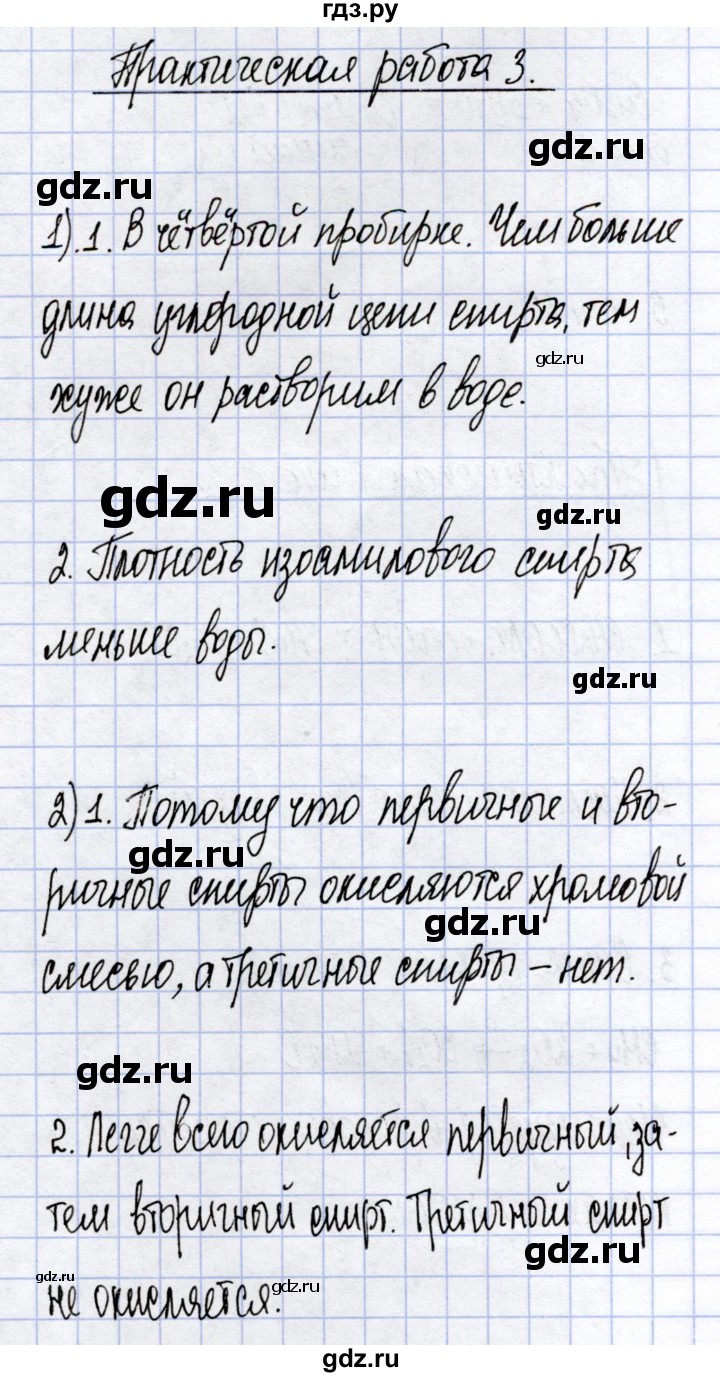 гдз.ру
Практическая работа 3.
gdz.ru
gdz.ru
1).1. В чётвёртой пробирке. Чем больше
длина углеродной цепи спирта, тем
gdz.ru
хуже он растворим в воде.
gdz.ru
gdz.ru
2. Плотность изоамилового спирта
меньше воды.
gdz.ru
2) 1. Потому что первичные и вто-
gdz.ru
ричные спирты окисляются хромовой
gdz.ru
смесью, а третичные спирты – нет.
gdz.ru
2. Легче всего окисляется первичный, за-
тем вторичный спирт. Третичный спирт
gdz.ru
gdz.ru
gdz.ru
не окисляется.
gdz.ru